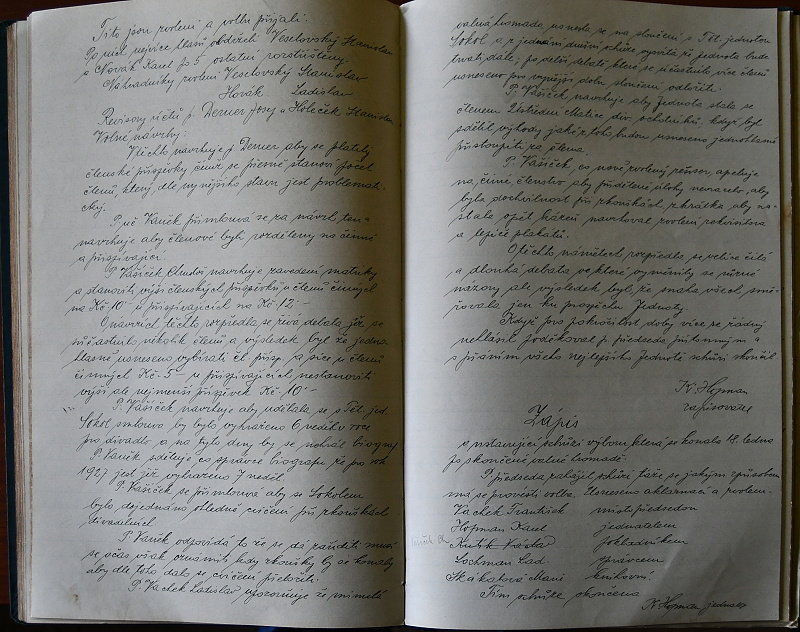 Tito jsou zvoleni a volbu přijali.
Po něm nejvíce hlasů obdrželi Veselovský Stanislav
a Novák Karel po 5 ostatní roztříštěny.
Náhradníky zvoleni Veselovský Stanislav
Novák Ladislav.
Revisory účtů p. Demer Josef a Holeček Stanislav
Volné návrhy:
V těchto navrhuje p. Demer aby se platily
členské příspěvky čímž se pevně stanoví počet
členů, který dle nynějšího stavu jest problemati-
cký.
P. uč. Vaněk přimlouvá se za návrh ten a
navrhuje aby členové byli rozděleni na činné
a přispívající.
P. Vašíček navrhuje zavedení matriky
a stanoviti výši členských příspěvků u členů činných
na Kč 10 u přispívajících na Kč 12.-
O návrzích těchto rozpředla se živá debata jíž se
súčastnilo několik členů a výsledek byl že jedno-
hlasně usneseno vybírati čl. přísp. a sice u členů
činných Kč 5 u přispívajících nestanoviti
výši ale nejmenší příspěvek Kč 10.-
P. Vašíček navrhuje aby udělala se s Těl. jed.
Sokol smlouva by bylo vyhraženo 6 nedělí v roce
pro divadlo a na tyto dny by se nehrál biograf
P. Vaněk sděluje co správce biografu že pro rok
1927 jest již vyhraženo 7 neděl.
P. Vašíček se přimlouvá aby se Sokolem
bylo dojednáno ohledně cvičení při zkouškách
divadelních.
P. Vaněk odpovídá to že se dá zaříditi musí
se včas však oznámiti kdy zkoušky by se konaly
aby dle toho dalo se cvičení přeložiti.
P. Vachek Ladislav upozorňuje že minulá
valná hromada usnesla se na sloučení s Těl. jednotou
Sokol a z jednání dnešní schůze vysvítá že jednota bude
trvati dále, po delší debatě které se účastnilo více členů
usneseno pro nynější dobu sloučení odložiti.
P. Vašíček navrhuje aby jednota stala se
členem Ústřední Matice div. ochotníků když byl
sdělil výhody jaké z toho budou usneseno jednohlasně
přistoupiti za člena.
P. Vašíček, co nově zvolený režisér, apeluje
na činné členstvo aby přidělené úlohy nevracelo, aby
byla dochvilnost při zkouškách, zkrátka aby na-
stala opět kázeň navrhoval zvolení rekvisitora
a lepiče plakátů.
O těchto námětech rozpředla se velice čilá
a dlouhá debata ve které vyměnily se různé
názory ale výsledek byl, že snaha všech smě-
řovala jen ku prospěchu Jednoty.
Když pro pokročilost doby více se žádný
nehlásil poděkoval p. předseda přítomným a
s přáním všeho nejlepšího Jednotě schůzi skončil
K. Hofman
zapisovatel
Zápis
o ustavující schůzi výboru která se konala 18. ledna
po skončené valné hromadě.
P. předseda zahájil schůzi táže se jakým způsobem
má se provésti volba. Usneseno aklamací a zvoleni.
Vachek František místopředsedou
Hofman Karel jednatelem
pokladníkem
Lochman Lad. správcem
Skákalová Marie knihovní.
Tím schůze skončena
K. Hofman jednatel